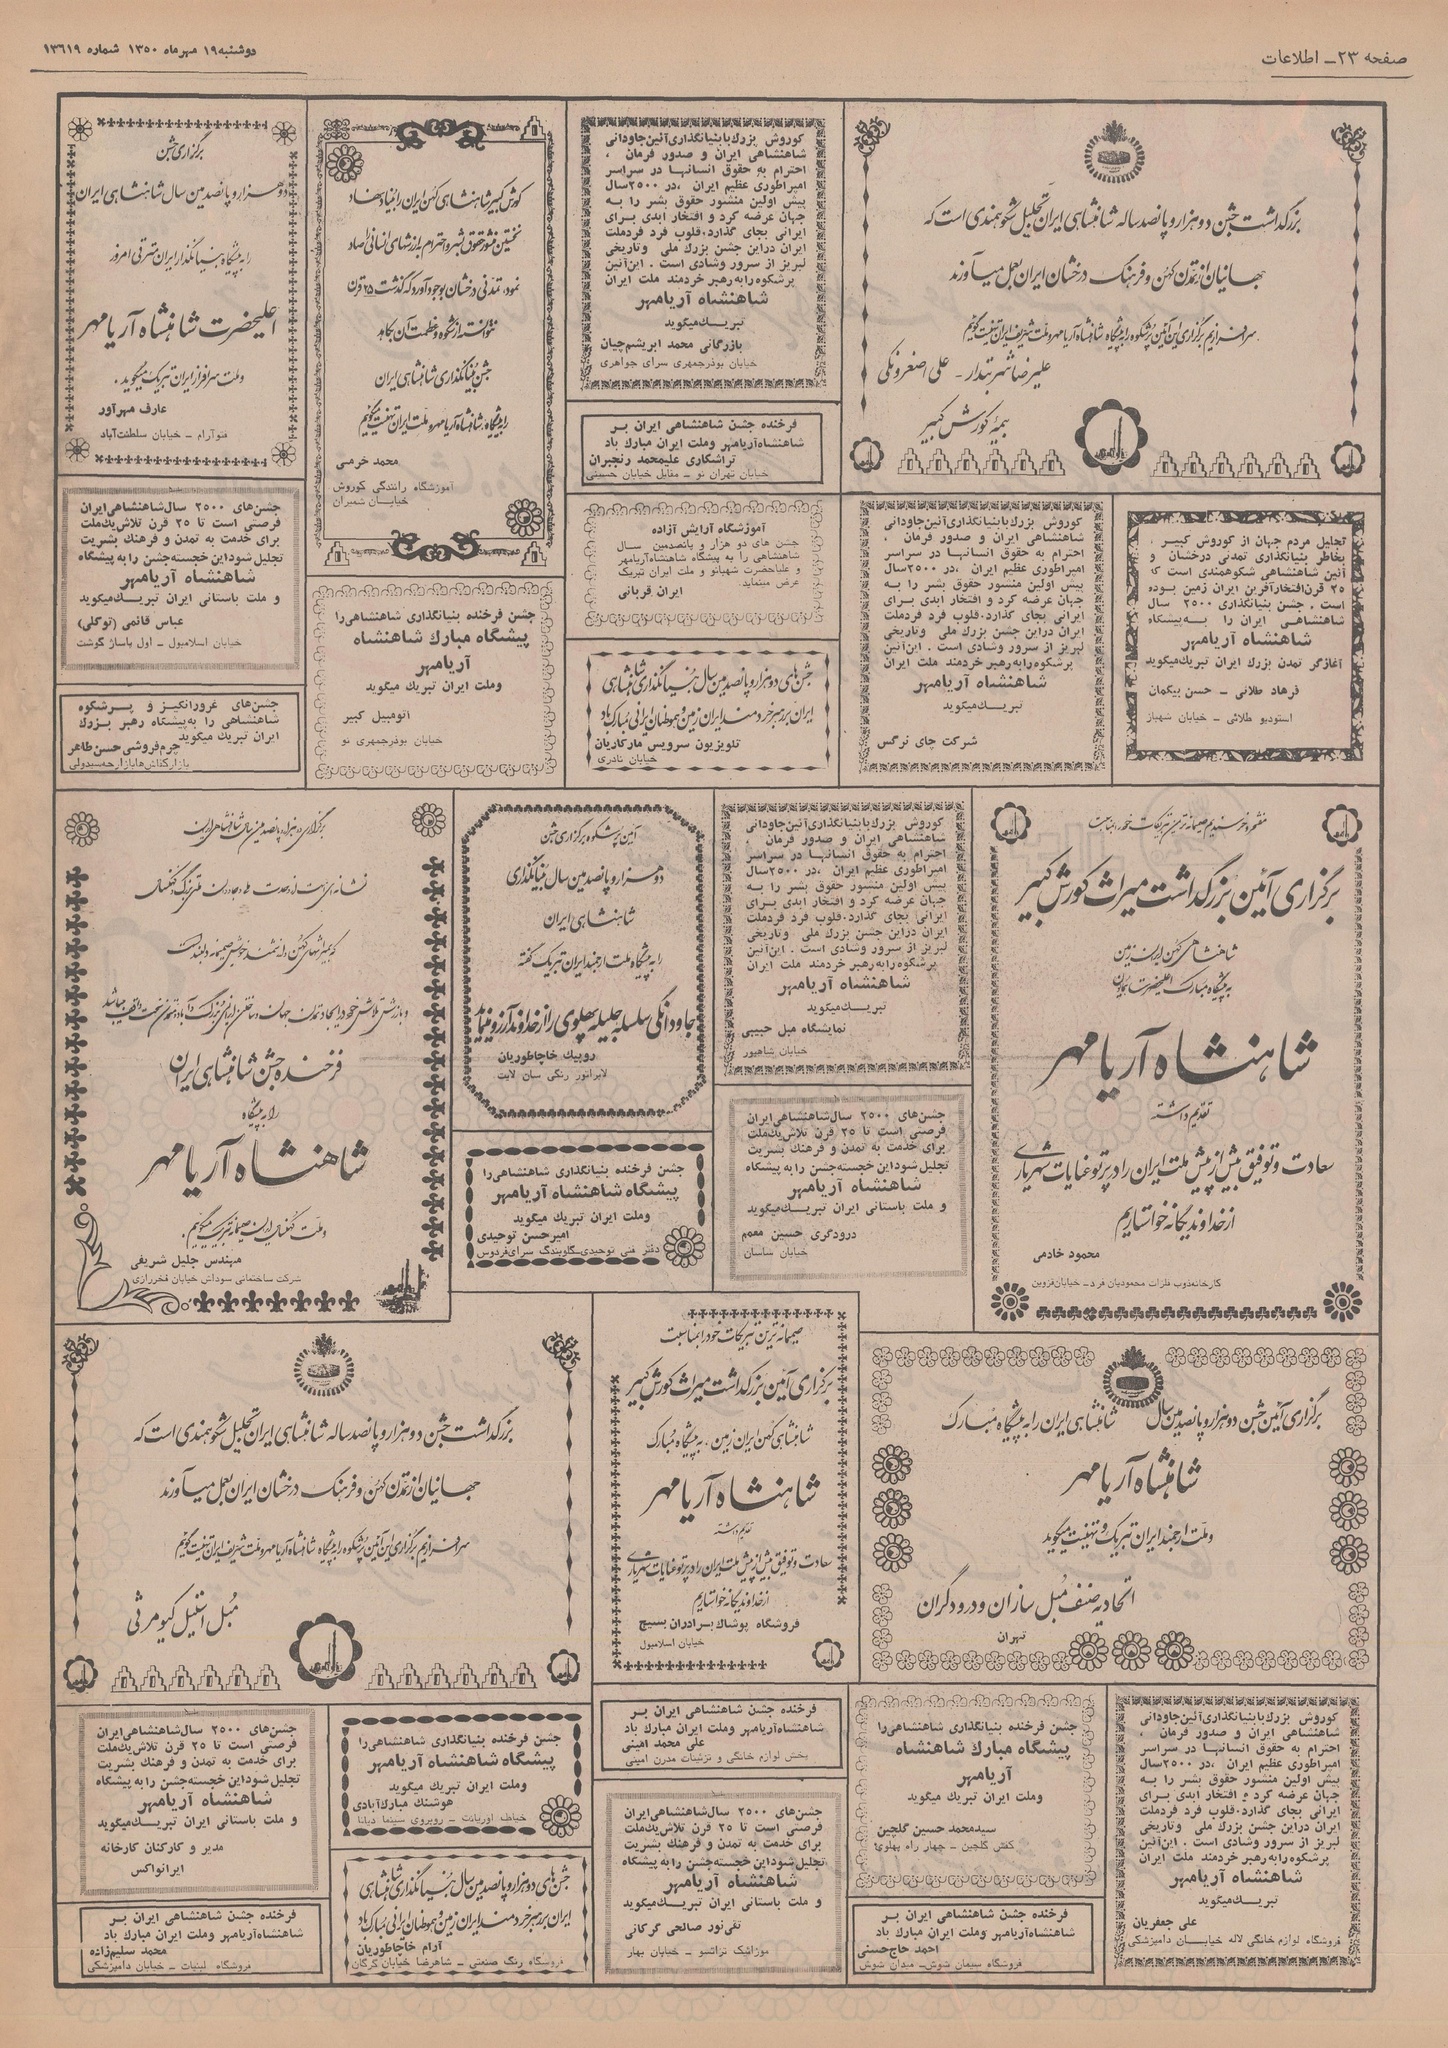 صفحه ۲۳ــ اطلاعات
دوشنبه ۱۹ مهرماه ۱۳۵۰ شماره ۱۳۶۱۹
بزرگداشت جشن دوهزار و پانصد ساله شاهنشاهی ایران تجلیل شکوهمندی است که
جهانیان از تمدن کهن و فرهنگ درخشان ایران بعمل میآورند
سرافرازیم برگزاری این آئین پرشکوه را به پیشگاه شاهنشاه آریامهر و ملت شریف ایران تهنیت گوئیم
بیمهٔ کورش کبیر
کوروش بزرگ با بنیانگذاری آئین جاودانی
شاهنشاهی ایران و صدور فرمان ،
احترام به حقوق انسانها در سراسر
امپراطوری عظیم ایران ،در ۲۵۰۰سال
پیش اولین منشور حقوق بشر را به
جهان عرضه کرد و افتخار ابدی برای
ایرانی بجای گذارد،قلوب فرد فردملت
ایران دراین جشن بزرگ ملی وتاریخی
لبریز از سرور وشادی است . این‌آئین
پرشکوه رابه رهبر خردمند ملت ایران
شاهنشاه آریامهر
تبریـك میگوید
بازرگانی محمد ابریشم‌چیان
خیابان بوذرجمهری سرای جواهری
فرخنده جشن شاهنشاهی ایران بـر
شاهنشاه‌آریامهر وملت ایران مبارك باد
تراشکاری علیمحمد رنجبران
خیابان تهران نو ــ مقابل خیابان حسینی
کورش کبیر شاهنشاهی کهن ایران را بنیاد نهاد
جشن بنیانگذاری شاهنشاهی ایران
را به پیشگاه شاهنشاه آریامهر و ملت ایران تهنیت میگوئیم
محمد خرمی
آموزشگاه رانندگی کوروش
خیابـان شمیران
برگزاری جشن
دوهزار و پانصدمین سال شاهنشاهی ایران
را به پیشگاه بنیانگذار ایران مترقی امروز
اعلیحضرت شاهنشاه آریامهر
و ملت سرافراز ایران تبریک میگوید .
عارف مهرآور
خیابان سلطنت‌آباد
تجلیل مردم جهان از کوروش کبیـر ،
بخاطر بنیانگذاری تمدنی درخشان و
آئین شاهنشاهی شکوهمندی است که
۲۵ قرن‌افتخارآفرین ایران زمین بوده
است . جشن بنیانگذاری ۲۵۰۰ سال
شاهنشاهی ایران را به‌پیشگاه
شاهنشاه آریامهر
آغازگر تمدن بزرك ایران تبریك‌میگوید
فرهاد طلائی ــ حسن بیگمان
استودیو طلائی ــ خیابان شهباز
کوروش بزرگ با بنیانگذاری آئین جاودانی
شاهنشاهی ایران و صدور فرمان ،
احترام به حقوق انسانها در سراسر
امپراطوری عظیم ایران ،در ۲۵۰۰سال
پیش اولین منشور حقوق بشر را به
جهان عرضه کرد و افتخار ابدی برای
ایرانی بجای گذارد،قلوب فرد فردملت
ایران دراین جشن بزرگ ملی وتاریخی
لبریز از سرور وشادی است . این‌آئین
پرشکوه رابه رهبر خردمند ملت ایران
شاهنشاه آریامهر
تبریـك میگوید
شرکت چای نرگس
آموزشگاه آرایش آزاده
جشن های دو هزار و پانصدمین سـال
شاهنشاهی را به پیشگاه شاهنشاه‌آریامهر
و علیاحضرت شهبانو و ملت ایران تبریك
عرض مینماید.
ایران قربانی
جشن‌های دوهزار و پانصدمین سال بنیانگذاری شاهنشاهی
ایران بر رهبر خردمند ایران زمین و هموطنان ایرانی مبارک باد
تلویزیون سرویس مارکاریان
خیابان نادری
جشن فرخنده بنیانگذاری شاهنشاهی‌را
پیشگاه مبارك شاهنشاه
آریامهر
وملت ایران تبریك میگوید
اتومبیل کبیر
خیابان بوذرجمهری نو
جشن‌های ۲۵۰۰ سال‌شاهنشاهی‌ایران
فرصتی است تا ۲۵ قرن تلاش‌یك‌ملت
برای خدمت به تمدن و فرهنك بشریت
تجلیل شوداین خجسته‌جشن را به پیشگاه
شاهنشاه آریامهر
و ملت باستانی ایران تبریـك‌میگوید
عباس قائمی (توکلی)
خیابان اسلامبول ــ اول پاساژ گوشت
جشن‌های غرورانگیز و پـرشکوه
شاهنشاهی را به‌پیشگاه رهبر بـزرك
ایران تبریك میگوید
چرم‌فروشی حسن طاهر
برگزاری آئین بزرگداشت میراث کورش کبیر
شاهنشاهی کهن ایران زمین
به پیشگاه مبارک اعلیحضرت همایون
شاهنشاه آریامهر
تقدیم داشته
سعادت و توفیق بیش از پیش ملت ایران را در پرتو عنایات شهریاری
از خداوند یگانه خواستاریم
محمود خادمی
کارخانه‌ذوب فلزات محمودیان فرد ــ خیابان‌قزوین
کوروش بزرگ با بنیانگذاری آئین جاودانی
شاهنشاهی ایران و صدور فرمان ،
احترام به حقوق انسانها در سراسر
امپراطوری عظیم ایران ،در ۲۵۰۰سال
پیش اولین منشور حقوق بشر را به
جهان عرضه کرد و افتخار ابدی برای
ایرانی بجای گذارد،قلوب فرد فردملت
ایران دراین جشن بزرگ ملی وتاریخی
لبریز از سرور وشادی است . این‌آئین
پرشکوه رابه رهبر خردمند ملت ایران
شاهنشاه آریامهر
تبریـك میگوید
نمایشگاه مبل حبیبی
خیابان شاهپور
جشن‌های ۲۵۰۰ سال‌شاهنشاهی‌ایران
فرصتی است تا ۲۵ قرن تلاش‌یك‌ملت
برای خدمت به تمدن و فرهنك بشریت
تجلیل شوداین خجسته‌جشن را به پیشگاه
شاهنشاه آریامهر
و ملت باستانی ایران تبریـك‌میگوید
درودگری حسین معمم
خیابان ساسان
آئین پرشکوه برگزاری جشن
دوهزار و پانصدمین سال بنیانگذاری
شاهنشاهی ایران
را به پیشگاه ملت ارجمند ایران تبریک گفته
جاودانگی سلسله جلیله پهلوی را از خداوند آرزو مینماید
روبیك خاچاطوریان
لابراتور رنگی سان لایت
جشن فرخنده بنیانگذاری شاهنشاهی‌را
پیشگاه شاهنشاه آریامهر
وملت ایران تبریك میگوید
امیرحسن توحیدی
دفتر فنی توحیدی‌ــ‌گلوبندک سرای‌فردوس
فرخنده جشن شاهنشاهی ایران
را به پیشگاه
شاهنشاه آریامهر
مهندس جلیل شریفی
شرکت ساختمانی سوداش خیابان فخررازی
برگزاری آئین جشن دوهزار و پانصدمین سال شاهنشاهی ایران را به پیشگاه مبارک
شاهنشاه آریامهر
و ملت ارجمند ایران تبریک و تهنیت میگوید
اتحادیه صنف مبل سازان و درودگران
تهران
صمیمانه‌ترین تبریکات خود را بمناسبت
برگزاری آئین بزرگداشت میراث کورش کبیر
شاهنشاهی کهن ایران زمین ، به پیشگاه مبارک
شاهنشاه آریامهر
تقدیم داشته
سعادت و توفیق بیش از پیش ملت ایران را در پرتو عنایات شهریاری
از خداوند یگانه خواستاریم
فروشگاه پوشاك بـرادران بسیج
خیابان اسلامبول
بزرگداشت جشن دوهزار و پانصد ساله شاهنشاهی ایران تجلیل شکوهمندی است که
جهانیان از تمدن کهن و فرهنگ درخشان ایران بعمل میآورند
سرافرازیم برگزاری این آئین پرشکوه را به پیشگاه شاهنشاه آریامهر و ملت شریف ایران تهنیت گوئیم
مبل استیل کیومرثی
کوروش بزرگ با بنیانگذاری آئین جاودانی
شاهنشاهی ایران و صدور فرمان ،
احترام به حقوق انسانها در سراسر
امپراطوری عظیم ایران ،در ۲۵۰۰سال
پیش اولین منشور حقوق بشر را به
جهان عرضه کرد و افتخار ابدی برای
ایرانی بجای گذارد،قلوب فرد فردملت
ایران دراین جشن بزرگ ملی وتاریخی
لبریز از سرور وشادی است . این‌آئین
پرشکوه رابه رهبر خردمند ملت ایران
شاهنشاه آریامهر
تبریـك میگوید
علی جعفریان
فروشگاه لوازم خانگی لاله خیابـان دامپزشکی
جشن فرخنده بنیانگذاری شاهنشاهی‌را
پیشگاه مبارك شاهنشاه
آریامهر
وملت ایران تبریك میگوید
سیدمحمد حسین گلچین
کفش گلچین ــ چهار راه پهلوی
فرخنده جشن شاهنشاهی ایران بـر
شاهنشاه‌آریامهر وملت ایران مبارك باد
احمد حاج‌حسنی
فروشگاه سیمان شوش‌ــ میدان شوش
فرخنده جشن شاهنشاهی ایران بـر
شاهنشاه‌آریامهر وملت ایران مبارك باد
علی محمد امینی
پخش لوازم خانگی و تزئینات مدرن امینی
جشن‌های ۲۵۰۰ سال‌شاهنشاهی‌ایران
فرصتی است تا ۲۵ قرن تلاش‌یك‌ملت
برای خدمت به تمدن و فرهنك بشریت
تجلیل شوداین خجسته‌جشن را به پیشگاه
شاهنشاه آریامهر
و ملت باستانی ایران تبریـك‌میگوید
تقی‌نور صالحی گرکانی
موزائیک تراتسو ــ خیابان بهار
جشن فرخنده بنیانگذاری شاهنشاهی‌را
پیشگاه شاهنشاه آریامهر
وملت ایران تبریك میگوید
هوشنك مبارك‌آبادی
خیاط اوریانت ــ روبروی سینما دیانا
جشن‌های دوهزار و پانصدمین سال بنیانگذاری شاهنشاهی
ایران بر رهبر خردمند ایران زمین و هموطنان ایرانی مبارک باد
آرام خاچاطوریان
فروشگاه رنگ صنعتی ــ شاهرضا خیابان گرگان
جشن‌های ۲۵۰۰ سال‌شاهنشاهی‌ایران
فرصتی است تا ۲۵ قرن تلاش‌یك‌ملت
برای خدمت به تمدن و فرهنك بشریت
تجلیل شوداین خجسته‌جشن را به پیشگاه
شاهنشاه آریامهر
و ملت باستانی ایران تبریـك‌میگوید
مدیر و کارکنان کارخانه
ایرانواکس
فرخنده جشن شاهنشاهی ایران بـر
شاهنشاه‌آریامهر وملت ایران مبارك باد
محمد سلیم‌زاده
فروشگاه لبنیات ــ خیابان دامپزشکی